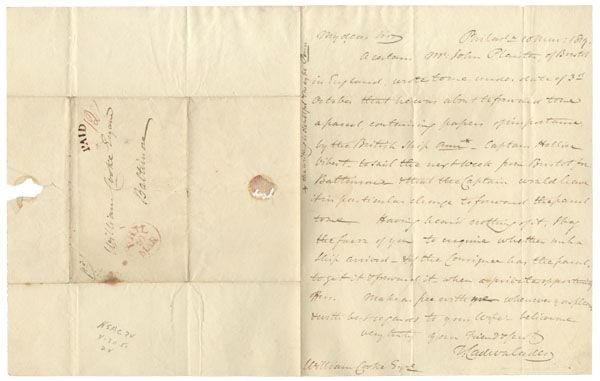 My dear Sir
Philad. 10 Mar: 1819.
A certain Mr. John Planter, of Bristol
in England, wrote to me under date of 3d
October that he was about to forward to me
a parcel containing papers of importance
by the British Ship Ann - Captain Hellier
Vibert to sail the next week from Bristol for
Baltimore & that the Captain would have
it in particular charge to forward the parcel
to me. Having heard nothing of it, I beg
the favor of you to enquire whether such a
Ship arrived - & if the Consignee has the parcel,
to get it & forward it, when a private opportunity
Make as free with me whenever you please
& with best regards to your Wife believe me
very truly your Friend & Servt
T Cadwalader
William Cooke Esqre.
PAID
William Cooke Esquire
Baltimore
MAR